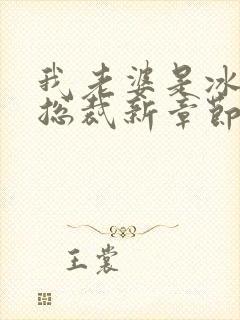 我老婆是冰
总裁新章节
王裳